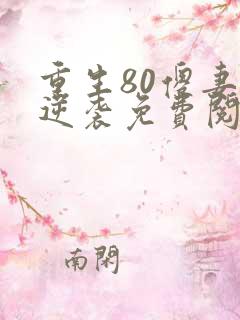 重生80俏妻
逆袭免费阅
南闲